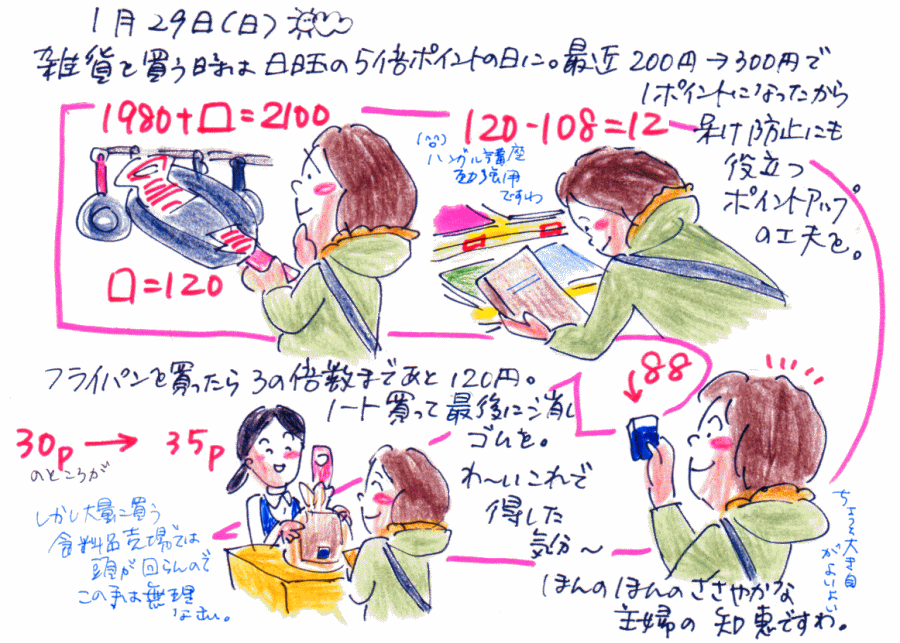 1月29日(日)
雑貨を買う時は日日玉の5倍ポイントの日に。最近 200円→300円で
1ポイントになったから
呆け防止にも
役立つ
ポイントアップ
の工夫を。
1980+□=2100
□=120
120-108=12
(^^)
ハングル講座
勉強用
ですわ
フライパンを買ったら3の倍数まであと120円。
ノート買って最後に消し
ゴムを。
88
わ～いこれで
得した
気分～
30p → 35p
のところが
しかし大量に買う
食料品売場では
頭が回らんので
この手は無理
なむ。
ちょっと大き目
がよいよい
ほんのほんのささやかな
主婦の知恵ですわ。